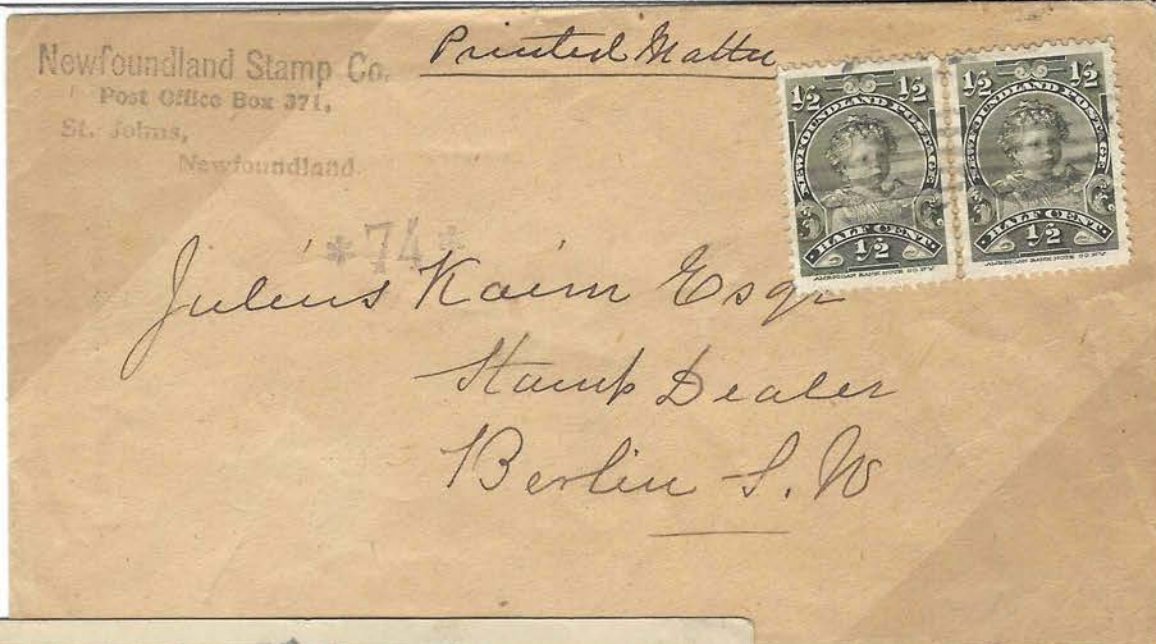 Newfoundland Stamp Co.
Post Office Box 371,
St. Johns,
Newfoundland
Printed Matter
1/2 1/2
NEWFOUNDLAND POSTAGE
HALF CENT
1/2
AMERICAN BANK NOTE CO. N.Y.
1/2 1/2
NEWFOUNDLAND POSTAGE
HALF CENT
1/2
AMERICAN BANK NOTE CO. N.Y.
*74*
Julius Kaim Esqr
Stamp Dealer
Berlin S. W